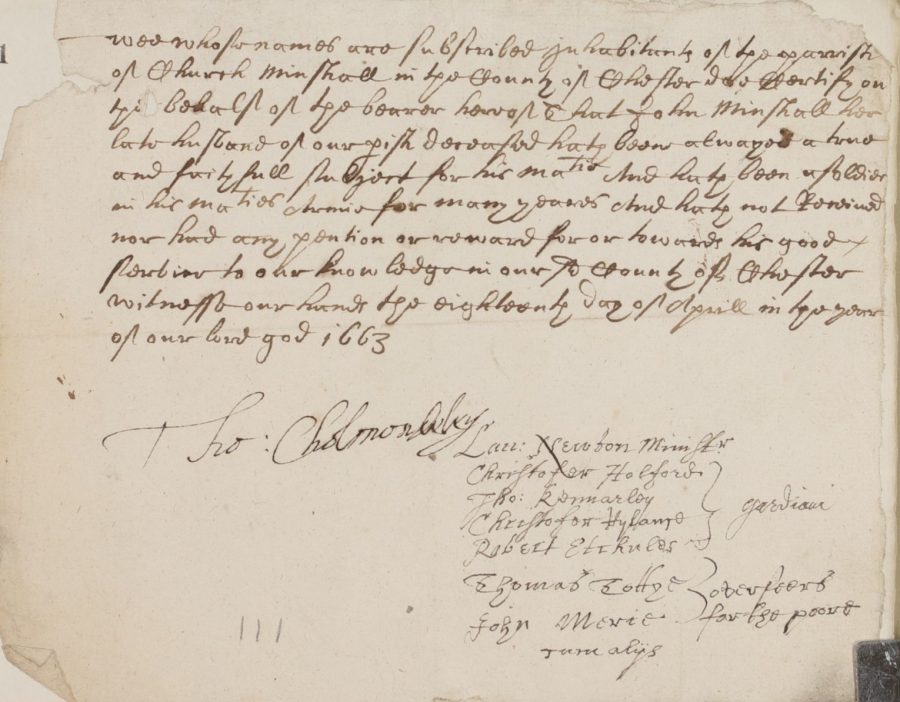 wee whose names are subscribed Inhabitants of the parrish
of Church Minshall in the County of Chester doe Certify on
the behalf of the bearer hereof That John Minshall her
late husband of our pish deceased hath been alwayes a true
and faithfull subject for his matie And hath been a soldier
in his maties Armie for many yeares And hath not Received
nor had any pention or reward for or towards his good
service to our knowledge in our sd County of Chester
witnesse our hands the eighteenth day of Aprill in the year
of our lord god 1663
Tho: Cholmondeley
Lau: Newton Ministr
Christofer Holford
Tho: Kennarley
Christofer Hylance
Robert Etchules
gardiani
Thomas Tottye
John Merie
overseers
for the poore
cum alijs
111